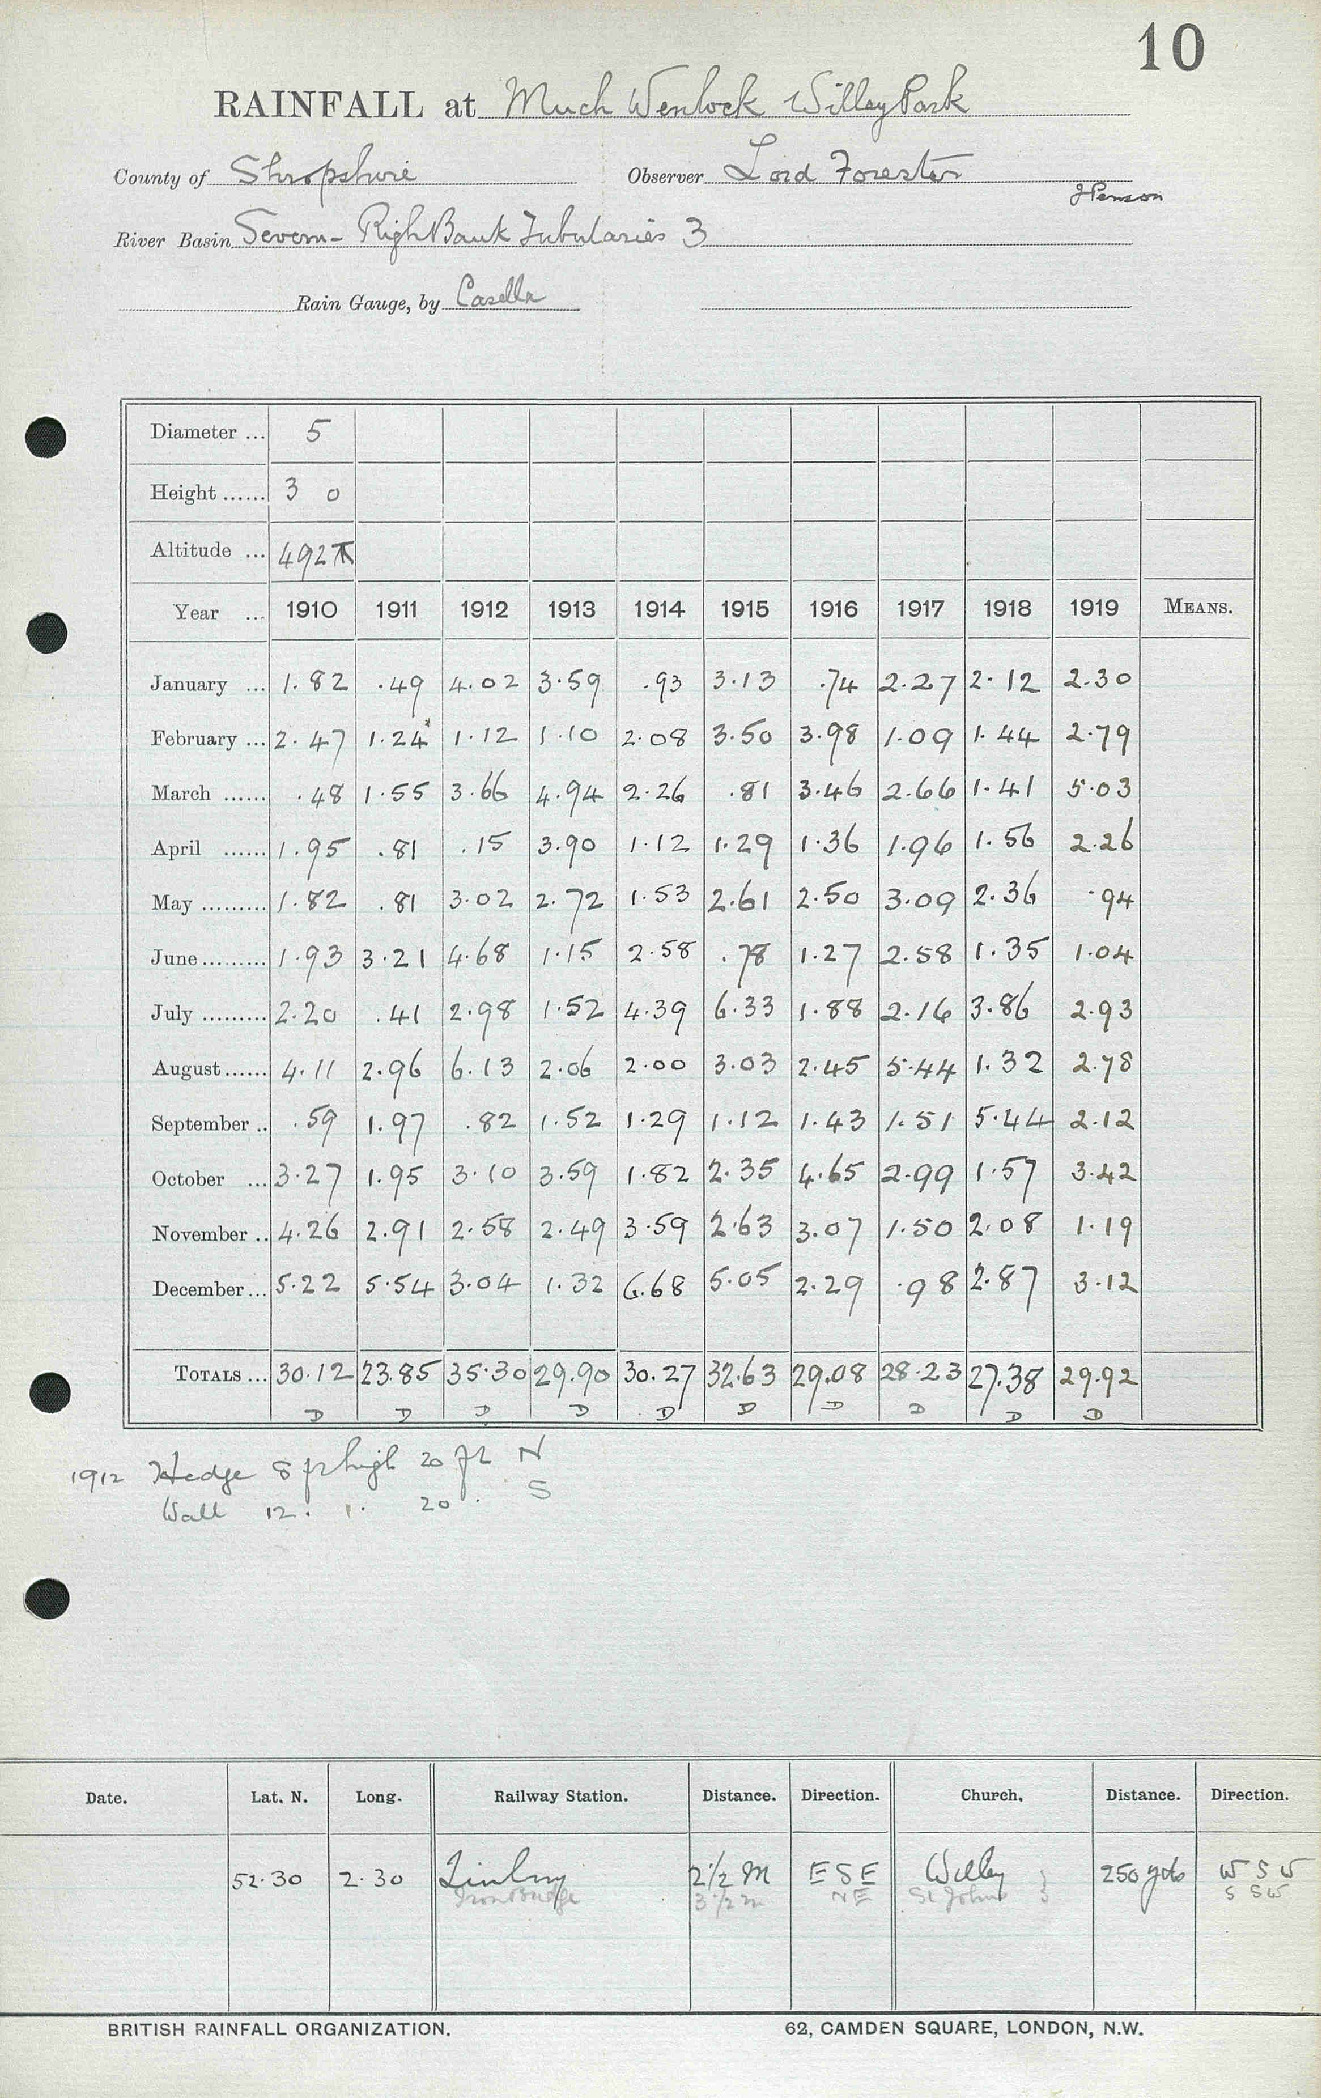 10
RAINFALL at Much Wenlock Willey Park
County of Shropshire Observer Lord Forester
J Penson
River Basin Severn - Right Bank Tributaries 3
Rain Gauge, by Casella
Diameter ... 5
Height ...... 3 0
Altitude ... 492
Year ... 1910 1911 1912 1913 1914 1915 1916 1917 1918 1919 MEANS.
January ... 1.82 .49 4.02 3.59 .93 3.13 .74 2.27 2.12 2.30
February ... 2.47 1.24 1.12 1.10 2.08 3.50 3.98 1.09 1.44 2.79
March ...... .48 1.55 3.66 4.94 2.26 .81 3.46 2.66 1.41 5.03
April ...... 1.95 .81 .15 3.90 1.12 1.29 1.36 1.96 1.56 2.26
May ......... 1.82 .81 3.02 2.72 1.53 2.61 2.50 3.09 2.36 .94
June ......... 1.93 3.21 4.68 1.15 2.58 .78 1.27 2.58 1.35 1.04
July ......... 2.20 .41 2.98 1.52 4.39 6.33 1.88 2.16 3.86 2.93
August ...... 4.11 2.96 6.13 2.06 2.00 3.03 2.45 5.44 1.32 2.78
September .. .59 1.97 .82 1.52 1.29 1.12 1.43 1.51 5.44 2.12
October ... 3.27 1.95 3.10 3.59 1.82 2.35 4.65 2.99 1.57 3.42
November .. 4.26 2.91 2.58 2.49 3.59 2.63 3.07 1.50 2.08 1.19
December ... 5.22 5.54 3.04 1.32 6.68 5.05 2.29 .98 2.87 3.12
TOTALS ... 30.12 23.85 35.30 29.90 30.27 32.63 29.08 28.23 27.38 29.92
D D D D D D D D D D
1912 Hedge 8 ft high 20 ft N
Wall 12 . 1 . 20 . S
Date. Lat. N. Long. Railway Station. Distance. Direction. Church. Distance. Direction.
52.30 2.30 Linley 2 1/2 M ESE Willey 250 yds WSW
Ironbridge 3 1/2 m NE St Johns S SW
BRITISH RAINFALL ORGANIZATION. 62, CAMDEN SQUARE, LONDON, N.W.